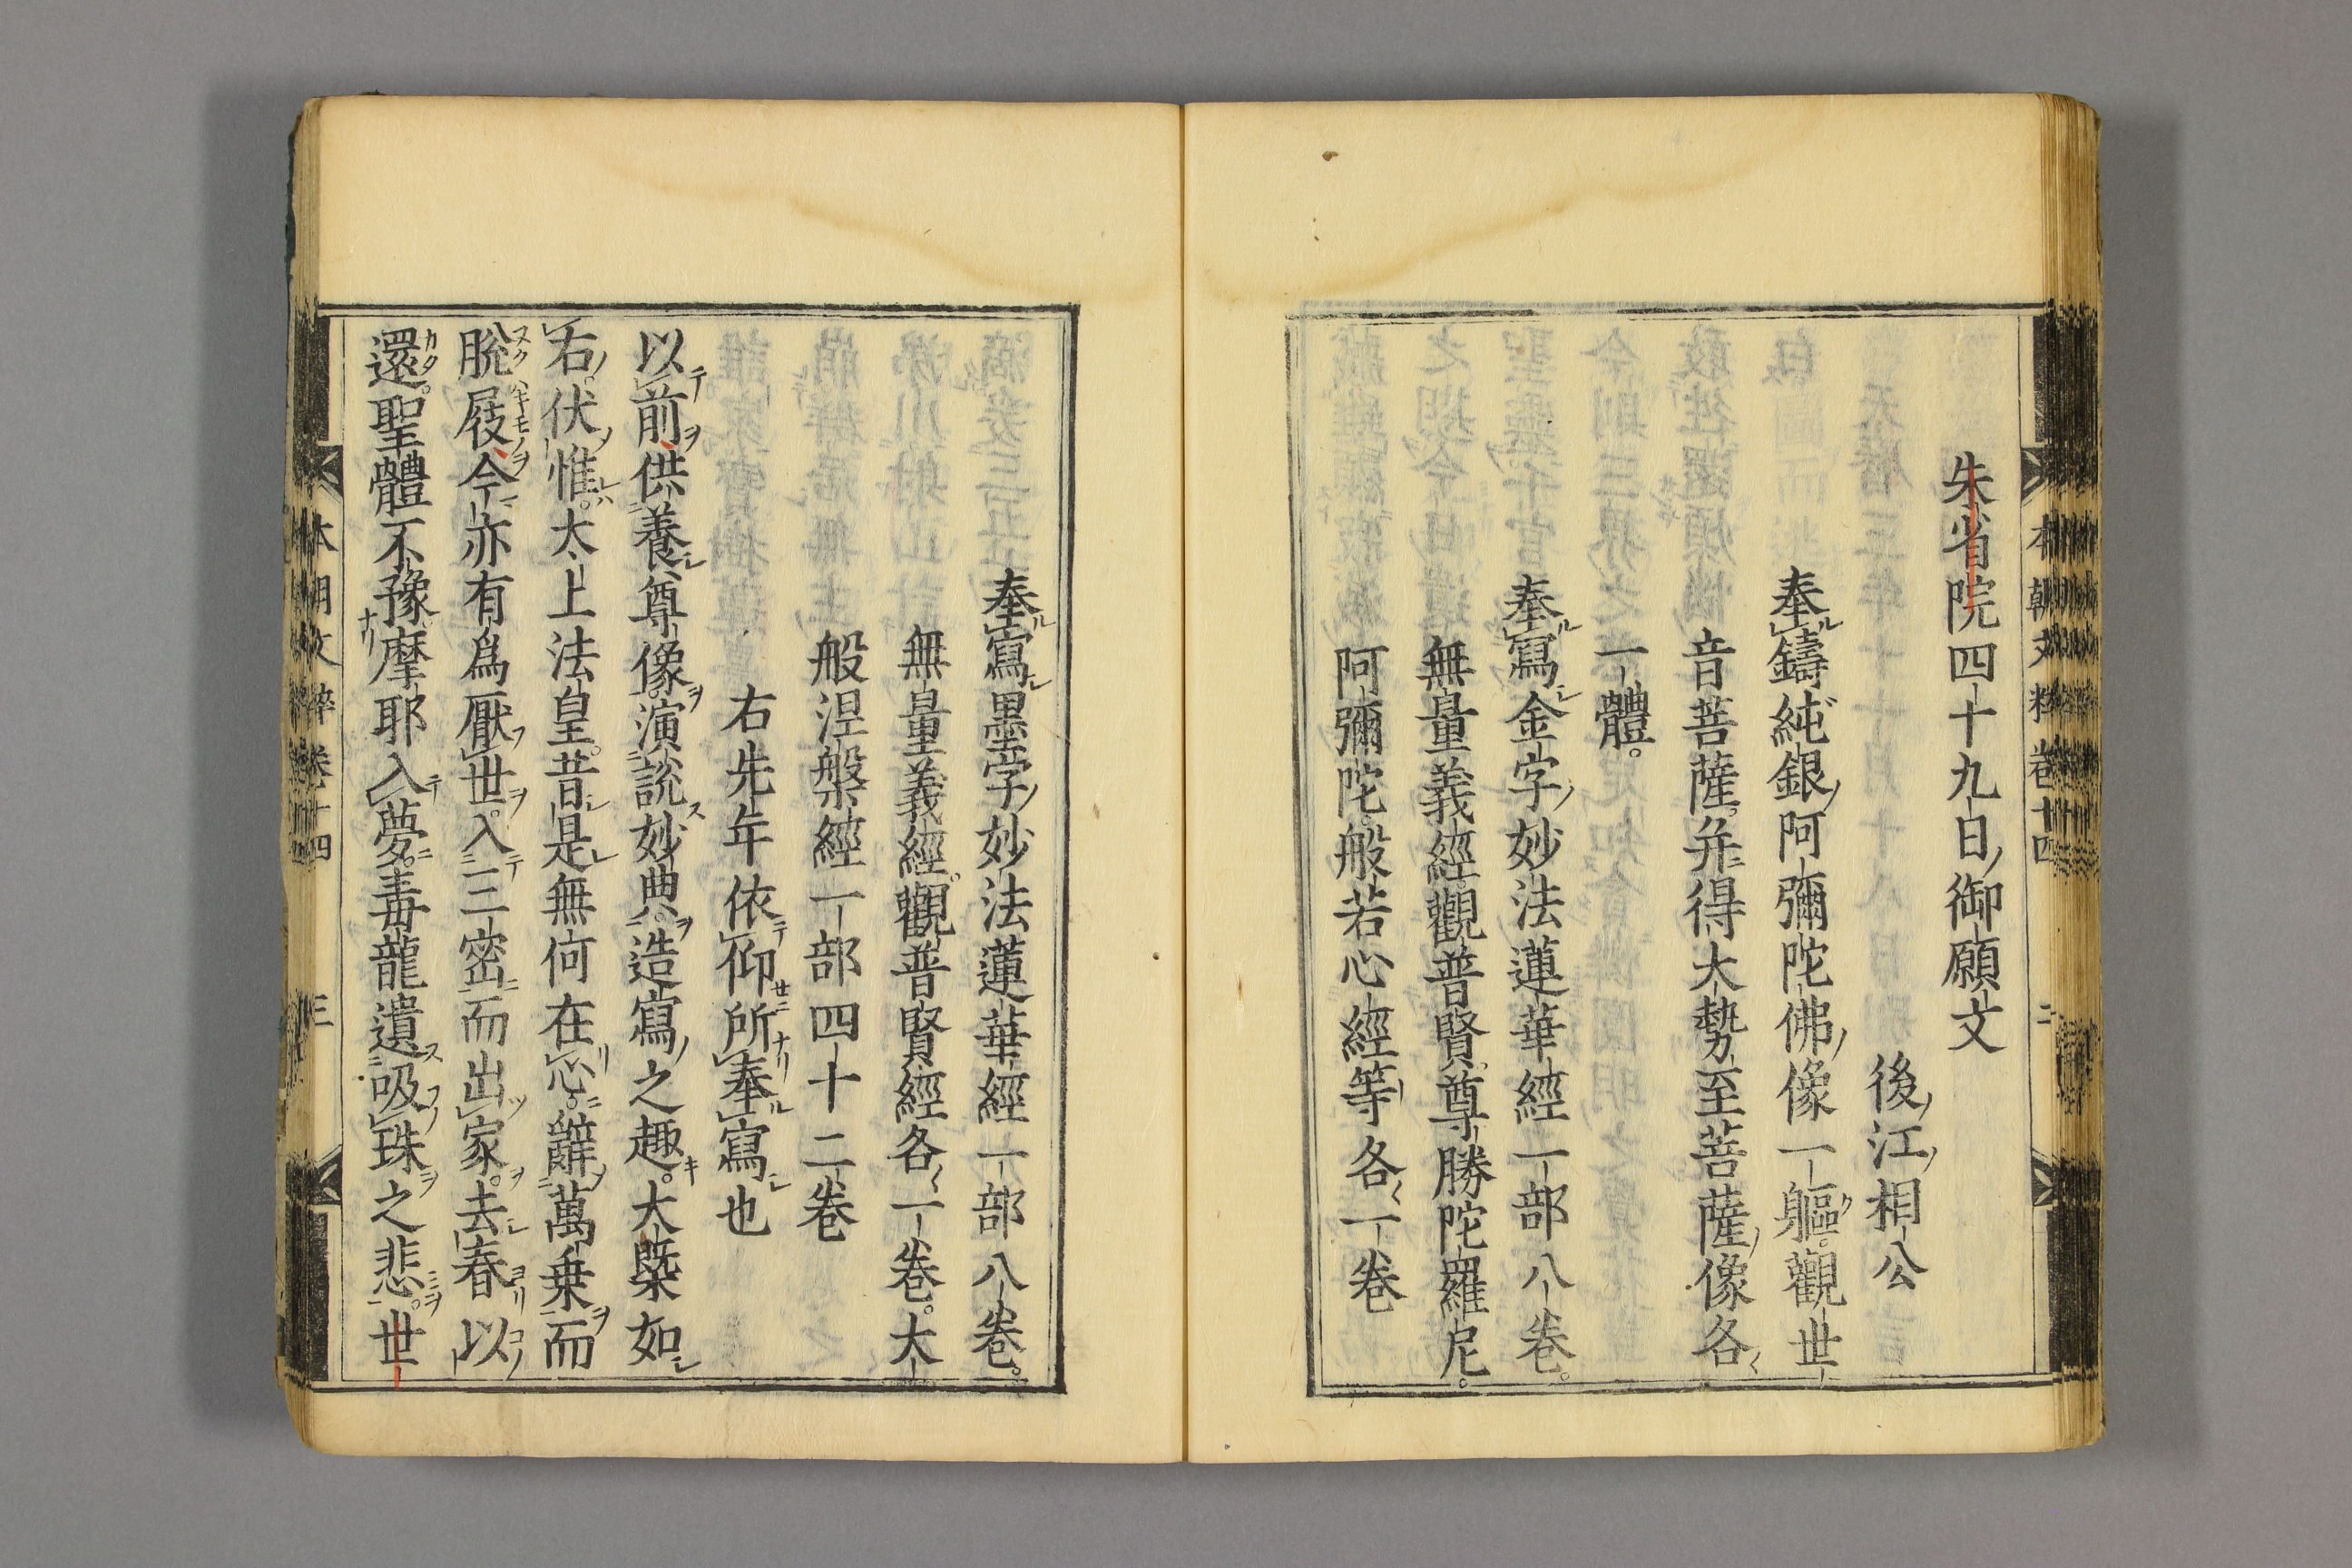 本朝文粹卷十四
二
朱雀院四十九日御願文
後江相公
奉鑄純銀阿彌陀佛像一軀觀世
音菩薩幷得大勢至菩薩像各
一體
奉寫金字妙法蓮華經一部八卷
無量義經觀普賢尊勝陀羅尼
阿彌陀般若心經等各一卷
奉寫墨字妙法蓮華經一部八卷
無量義經觀普賢經各一卷大
般涅槃經一部四十二卷
右先年依仰所奉寫也
以前供養尊像演說妙典造寫之趣大槩如
右伏惟太上法皇昔是無何在心辭萬乗而
脫屐今亦有爲厭世入三密而出家去春以
還聖體不豫摩耶入夢毒龍遺吸珠之悲世
本朝文粹卷十四
三